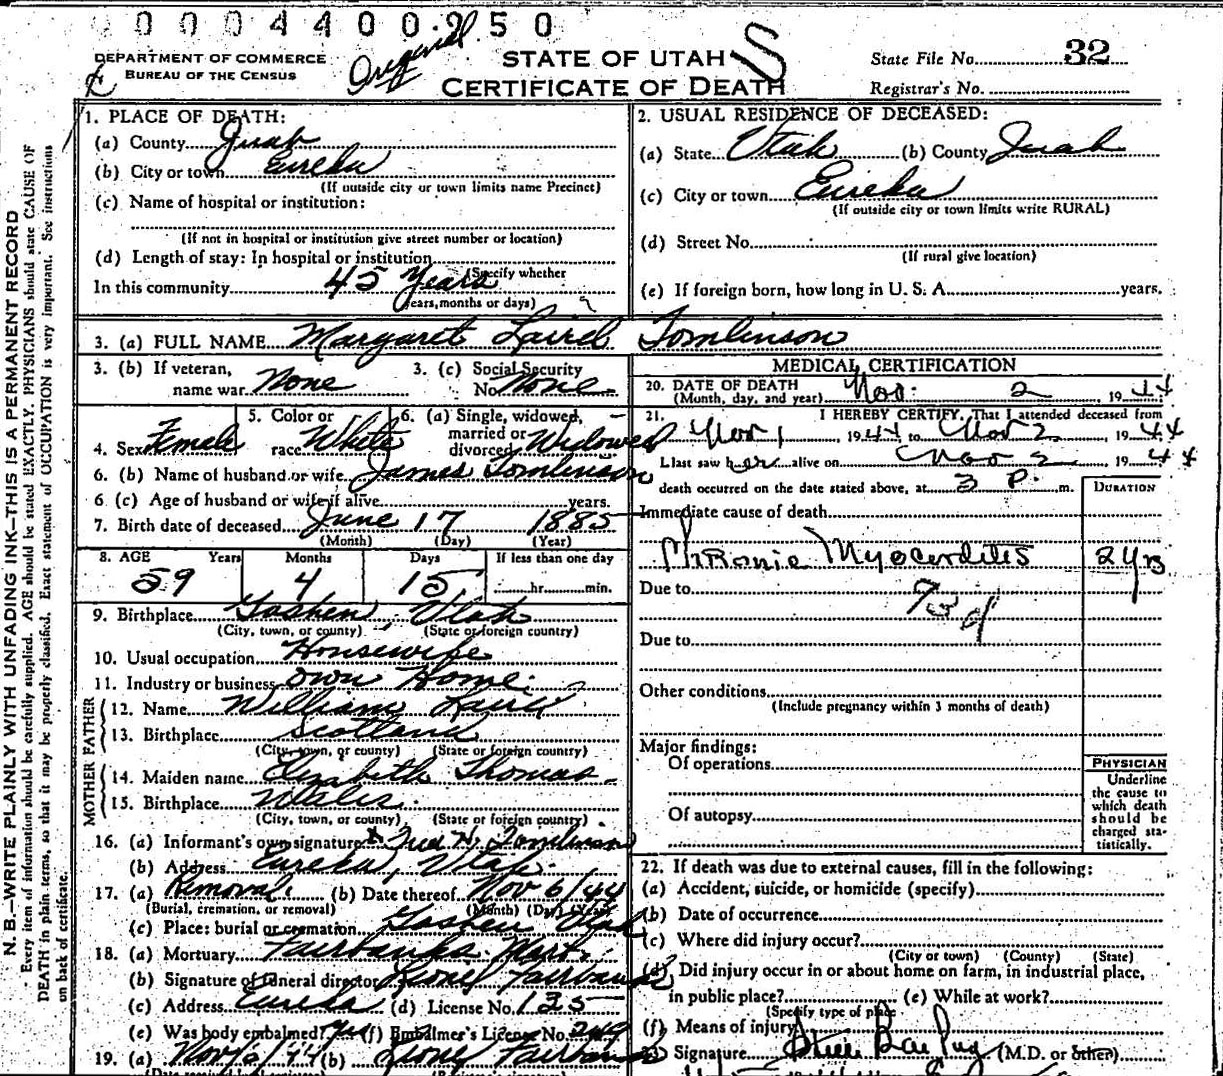 0004400950
Original
DEPARTMENT OF COMMERCE
BUREAU OF THE CENSUS
STATE OF UTAH
CERTIFICATE OF DEATH
State File No. 32
Registrar's No.
N. B.—WRITE PLAINLY WITH UNFADING INK—THIS IS A PERMANENT RECORD
Every item of information should be carefully supplied. AGE should be stated EXACTLY. PHYSICIANS should state CAUSE OF
DEATH in plain terms, so that it may be properly classified. Exact statement of OCCUPATION is very important. See instructions
on back of certificate.
1. PLACE OF DEATH:
(a) County Juab
(b) City or town Eureka
(If outside city or town limits name Precinct)
(c) Name of hospital or institution:
(If not in hospital or institution give street number or location)
(d) Length of stay: In hospital or institution
(Specify whether
In this community 45 Years
years, months or days)
2. USUAL RESIDENCE OF DECEASED:
(a) State Utah (b) County Juab
(c) City or town Eureka
(If outside city or town limits write RURAL)
(d) Street No.
(If rural give location)
(e) If foreign born, how long in U. S. A. years.
3. (a) FULL NAME Margaret Laird Tomlinson
3. (b) If veteran, name war None
3. (c) Social Security No. None
4. Sex Female
5. Color or race White
6. (a) Single, widowed, married or divorced Widowed
6. (b) Name of husband or wife James Tomlinson
6. (c) Age of husband or wife if alive years.
7. Birth date of deceased June 17 1885
(Month) (Day) (Year)
8. AGE Years Months Days If less than one day
59 4 15 hr. min.
9. Birthplace Goshen, Utah
(City, town, or county) (State or foreign country)
10. Usual occupation Housewife
11. Industry or business Own Home
FATHER
12. Name William Laird
13. Birthplace Scotland
(City, town, or county) (State or foreign country)
MOTHER
14. Maiden name Elizabeth Thomas
15. Birthplace Wales
(City, town, or county) (State or foreign country)
16. (a) Informant's own signature x Fred H. Tomlinson
(b) Address Eureka, Utah
17. (a) Removal (b) Date thereof Nov 6/44
(Burial, cremation, or removal) (Month) (Day) (Year)
(c) Place: burial or cremation Goshen Utah
18. (a) Mortuary Fairbanks Mort.
(b) Signature of funeral director Lionel Fairbanks
(c) Address Eureka (d) License No. 135
(e) Was body embalmed? Yes (f) Embalmer's License No. 249
19. (a) (b) Lionel Fairbanks
MEDICAL CERTIFICATION
20. DATE OF DEATH
(Month, day, and year) Nov. 2 1944
21. I HEREBY CERTIFY, That I attended deceased from
Nov 1 1944 to Nov 2, 1944
I last saw her alive on Nov 2, 1944
death occurred on the date stated above, at 3 P. m.
DURATION
Immediate cause of death
Chronic Myocarditis 2 yrs
Due to 93d
Due to
Other conditions
(Include pregnancy within 3 months of death)
Major findings:
Of operations
Of autopsy
PHYSICIAN
Underline
the cause to
which death
should be
charged sta-
tistically.
22. If death was due to external causes, fill in the following:
(a) Accident, suicide, or homicide (specify)
(b) Date of occurrence
(c) Where did injury occur?
(City or town) (County) (State)
(d) Did injury occur in or about home on farm, in industrial place,
in public place? (e) While at work?
(Specify type of place
(f) Means of injury
23. Signature (M.D. or other)